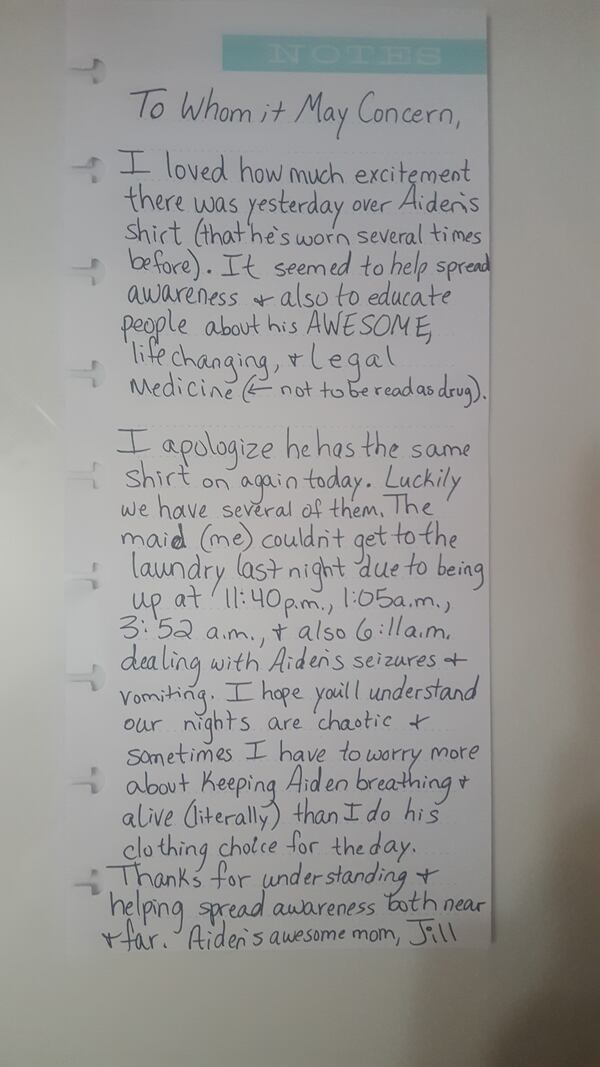 NOTES
To Whom it May Concern,
I loved how much excitement
there was yesterday over Aiden's
shirt (that he's worn several times
before). It seemed to help spread
awareness & also to educate
people about his AWESOME,
life changing, & legal
Medicine (← not to be read as drug).
I apologize he has the same
shirt on again today. Luckily
we have several of them. The
maid (me) couldn't get to the
laundry last night due to being
up at 11:40p.m., 1:05a.m.,
3:52 a.m., & also 6:11a.m.
dealing with Aiden's seizures &
vomiting. I hope you'll understand
our nights are chaotic &
sometimes I have to worry more
about keeping Aiden breathing &
alive (literally) than I do his
clothing choice for the day.
Thanks for understanding &
helping spread awareness both near
& far. Aiden's awesome mom, Jill